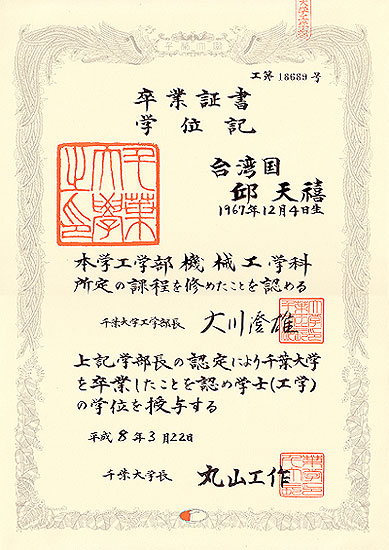 工第18689号
卒業証書
学位記
千葉大学之印
台湾国
邱天禧
1967年12月4日生
本学工学部機械工学科
所定の課程を修めたことを認める
千葉大学工学部長 大川澄雄
上記学部長の認定により千葉大学
を卒業したことを認め学士(工学)
の学位を授与する
平成8年3月22日
千葉大学長 丸山工作